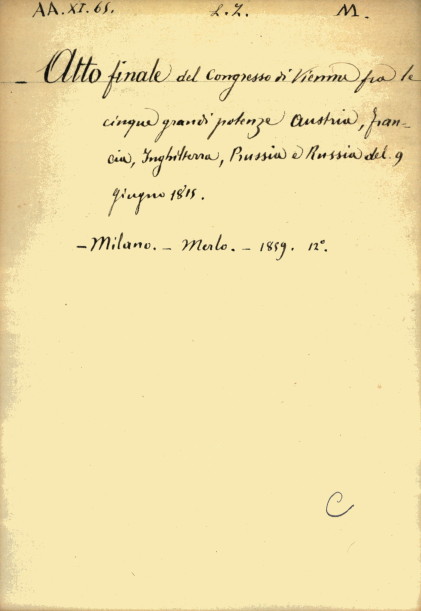 AA. XI. 65. L. Z. M.
- Atto finale del Congresso di Vienna fra le
cinque grandi potenze Austria, Fran-
cia, Inghilterra, Prussia e Russia del 9
giugno 1815.
- Milano. - Merlo. - 1859. 12°.
C